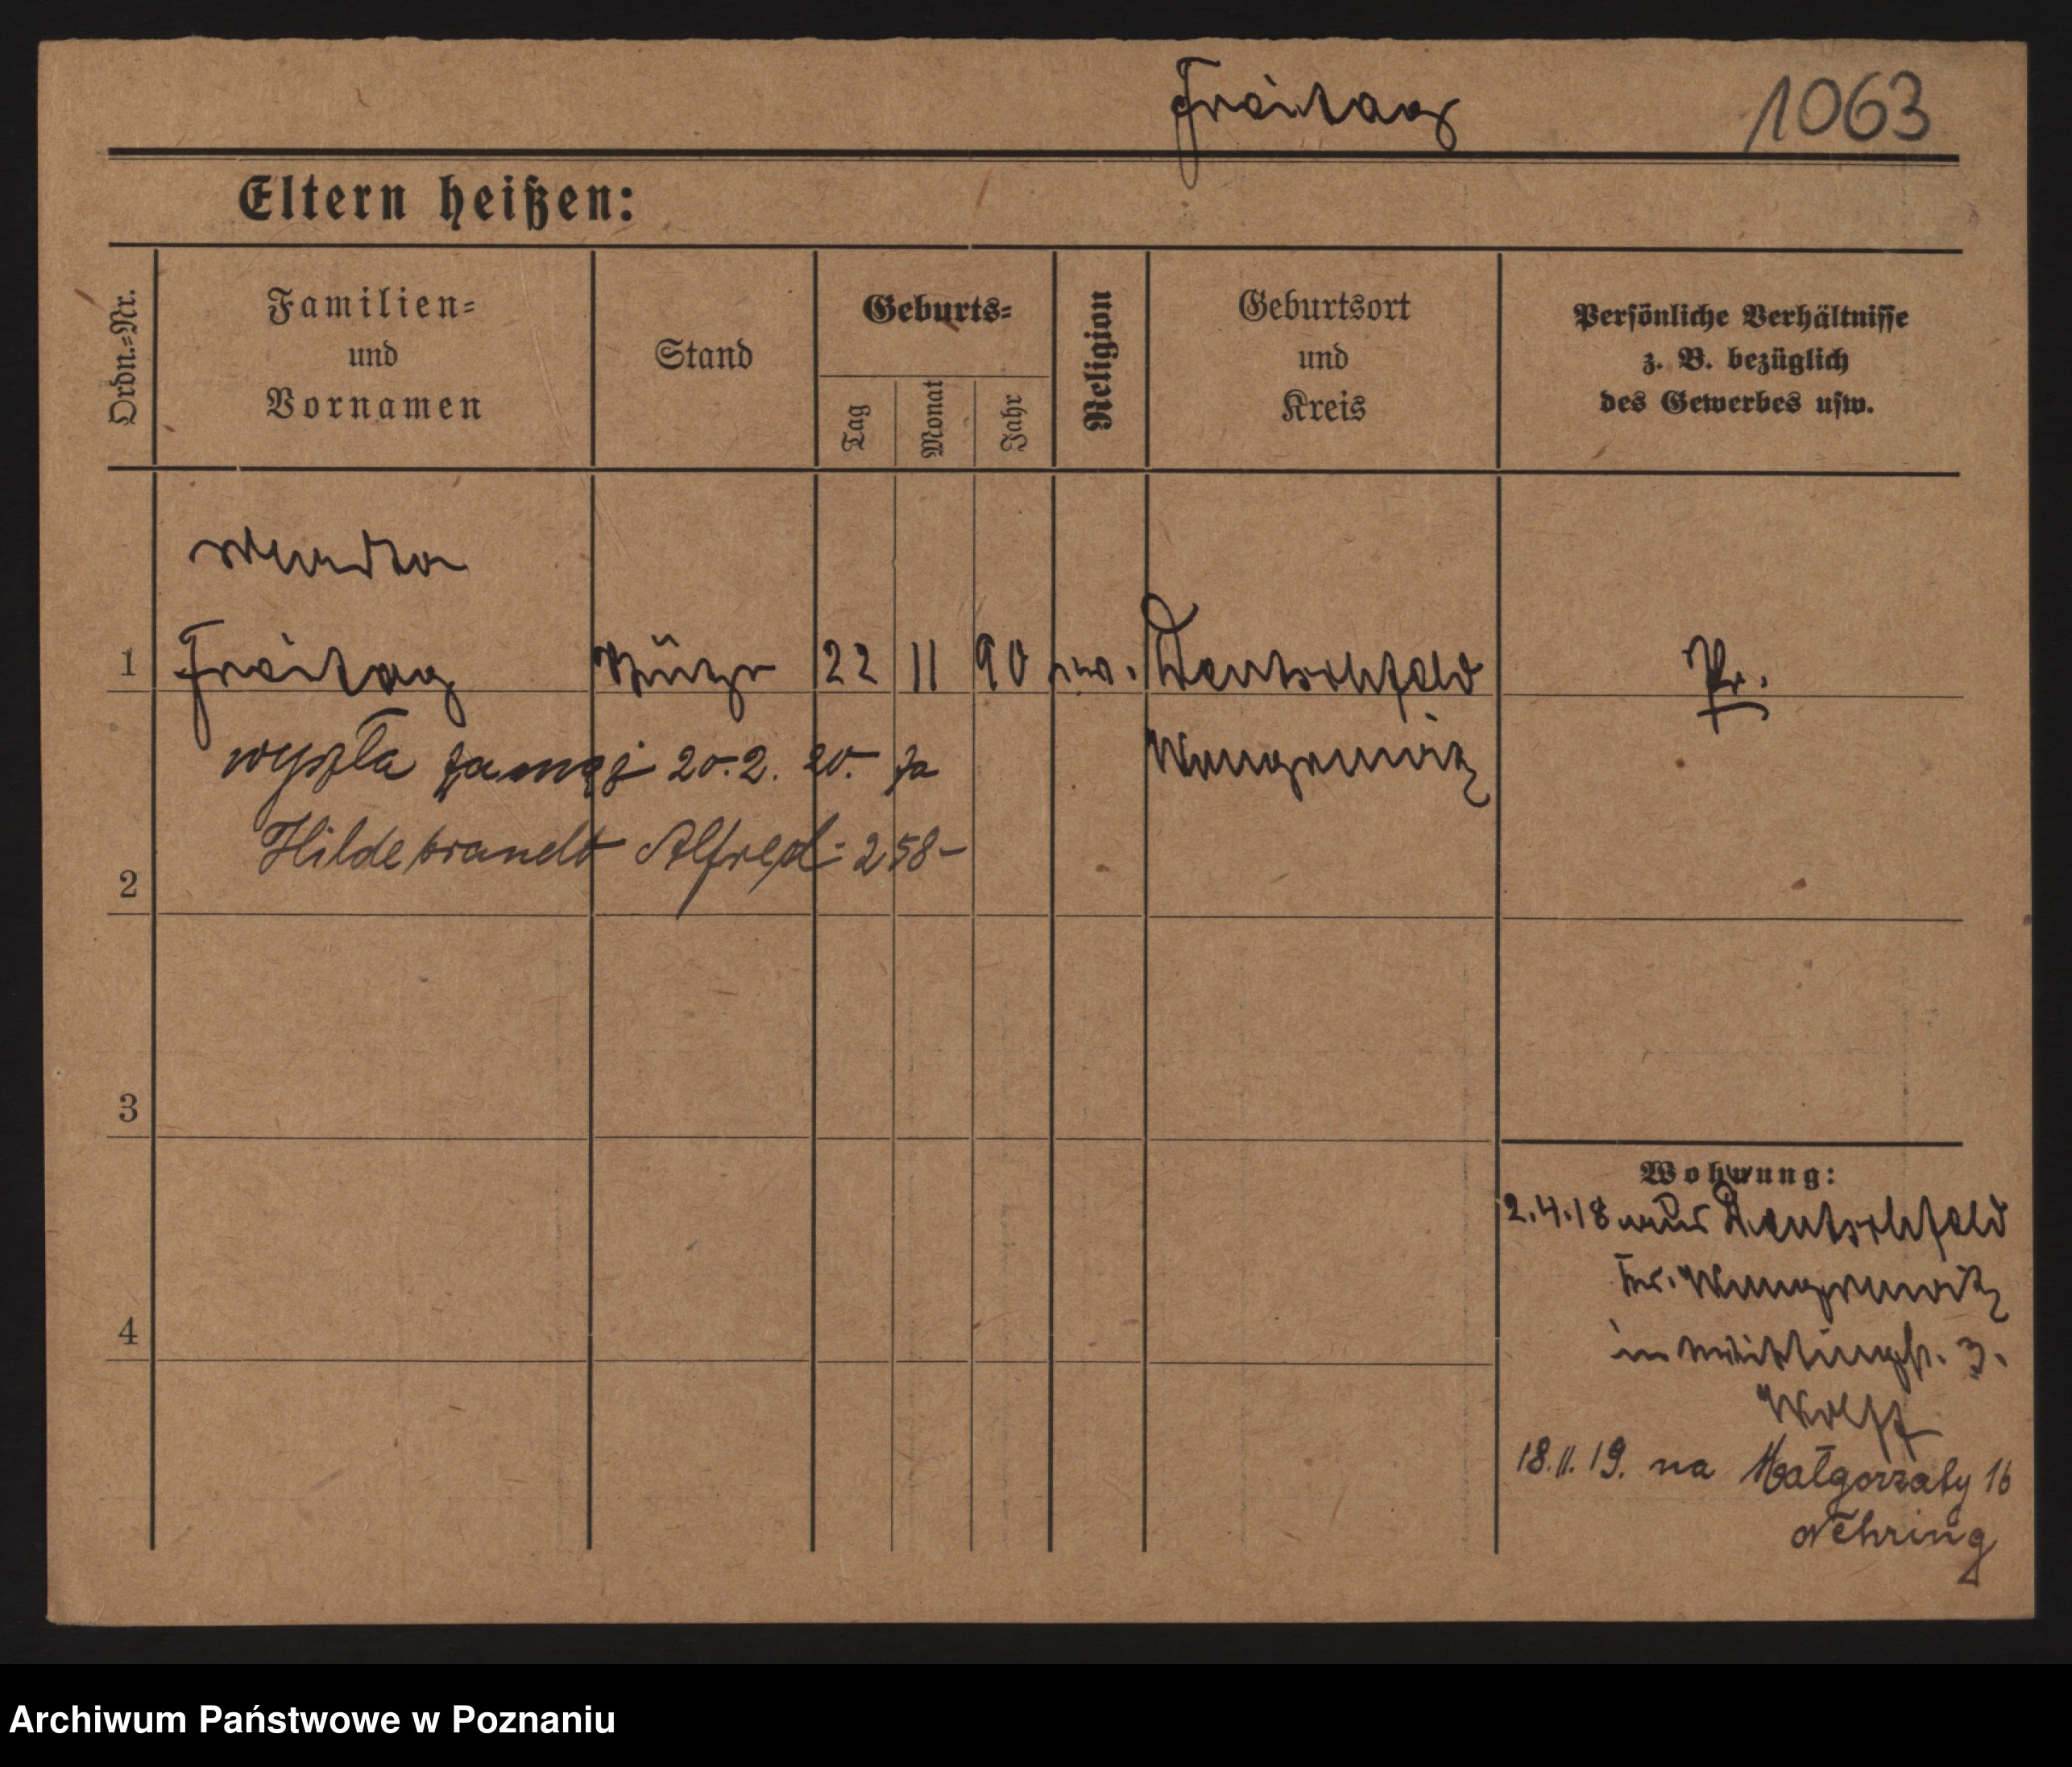 Freitag 1063
Eltern heißen:
Ordn.-Nr.
Familien-
und
Vornamen
Stand
Geburts-
Tag
Monat
Jahr
Religion
Geburtsort
und
Kreis
Persönliche Verhältnisse
z. B. bezüglich
des Gewerbes usw.
1 Freitag 22 11 90 Deutschfeld Pr.
wyszła zamąż 20.2.20. za
Wongrowitz
Hildebrandt Alfred 258-
2
3
4
Wohnung:
2.4.18 aus Deutschfeld
Kr. Wongrowitz
in 3.
Wolff
18.11.19. na Małgorzaty 16
Nehring
Archiwum Państwowe w Poznaniu